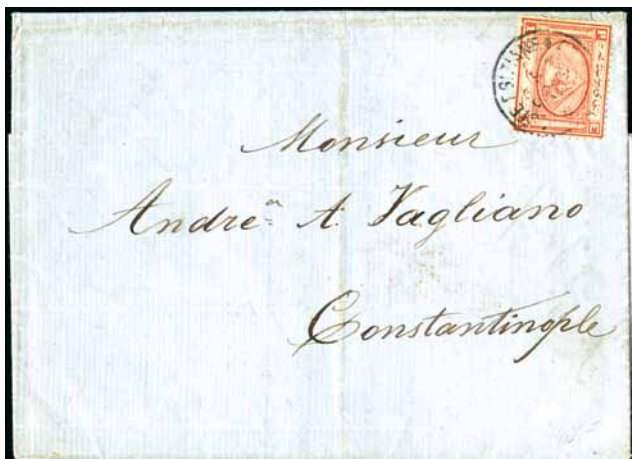 Monsieur
Andrea A. Vagliano
Constantinople